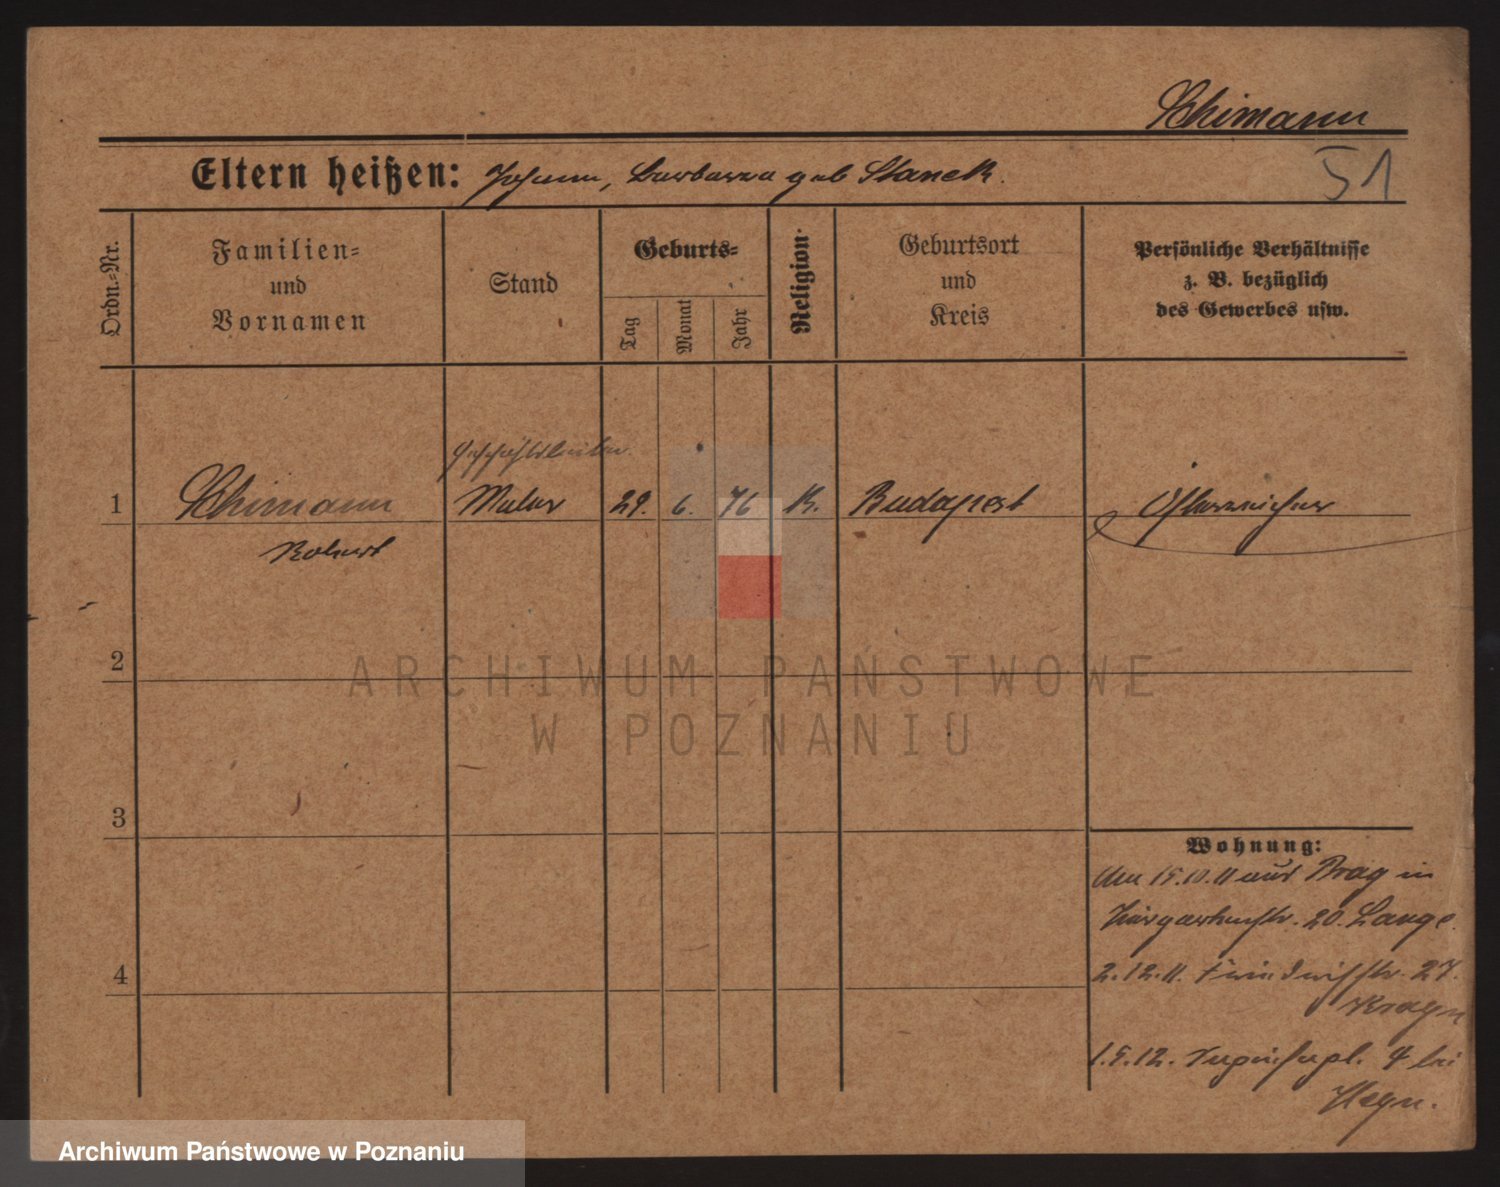 Schimann
Eltern heißen: Johann, Barbara geb Stanek.
51
Ordn.-Nr.
Familien-
und
Vornamen
Stand
Geburts-
Tag
Monat
Jahr
Religion.
Geburtsort
und
Kreis
Persönliche Verhältnisse
z. B. bezüglich
des Gewerbes usw.
Geschäftsleiter
1 Schimann Maler 29. 6. 76 K. Budapest Österreicher
Robert
2
3
4
Wohnung:
Am 15.10.11 aus Prag in
20. Lange
2.12.11. 27.
1.5.12. 4 bei
ARCHIWUM PAŃSTWOWE
W POZNANIU
Archiwum Państwowe w Poznaniu